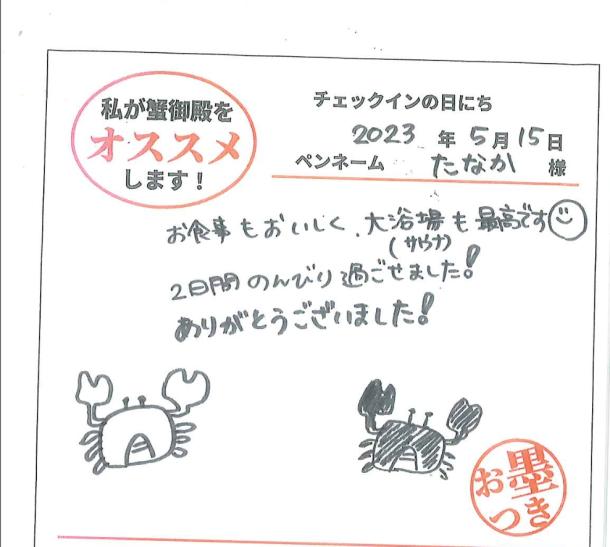 私が蟹御殿を
オススメ
します！
チェックインの日にち
2023 年 5月 15日
ペンネーム たなか 様
お食事もおいしく、大浴場も最高です
(サウナ)
2日間のんびり過ごせました!
ありがとうございました!
お墨
つき